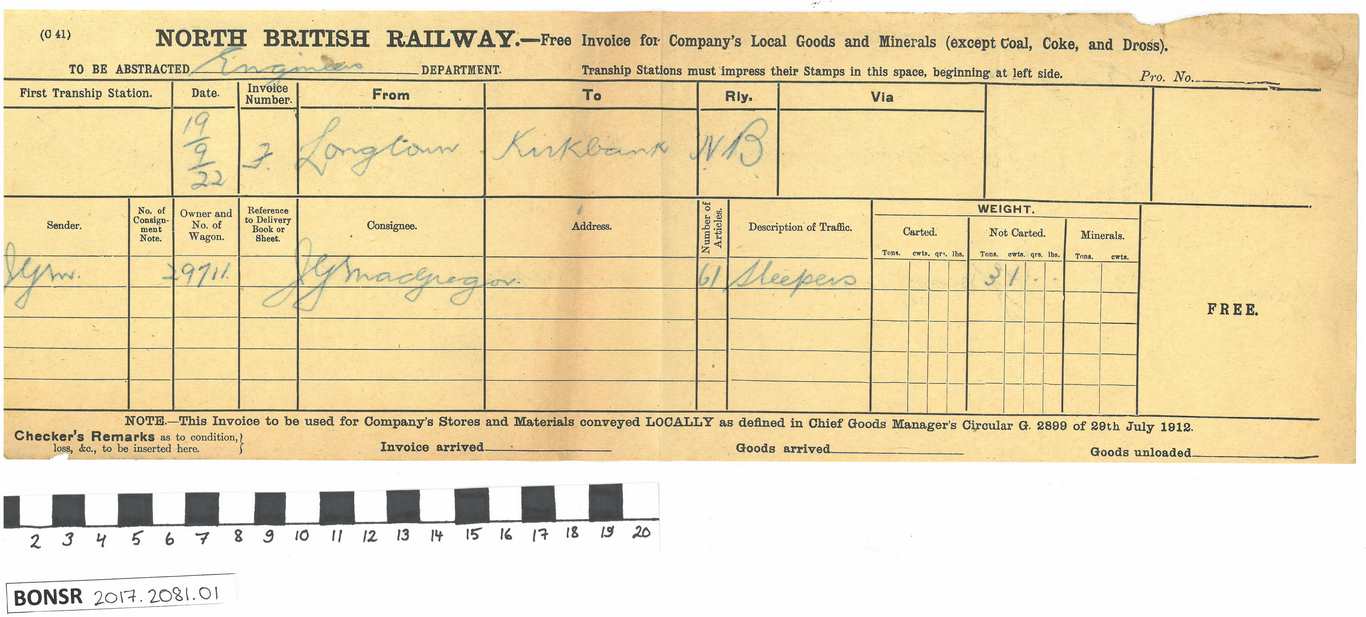 (C 41) NORTH BRITISH RAILWAY.—Free Invoice for Company's Local Goods and Minerals (except Coal, Coke, and Dross).
TO BE ABSTRACTED Engineers DEPARTMENT. Tranship Stations must impress their Stamps in this space, beginning at left side. Pro. No.
First Tranship Station. Date. Invoice Number. From To Rly. Via
19/9/22 Longtown Kirkbank NB
Sender. No. of Consign-ment Note. Owner and No. of Wagon. Reference to Delivery Book or Sheet. Consignee. Address. Number of Articles. Description of Traffic. WEIGHT.
Carted. Not Carted. Minerals.
Tons. cwts. qrs. lbs. Tons. cwts. qrs. lbs. Tons. cwts.
JGM. 29711. JG MacGregor. 61 Sleepers 3 1 . .
FREE.
NOTE.—This Invoice to be used for Company's Stores and Materials conveyed LOCALLY as defined in Chief Goods Manager's Circular G. 2899 of 29th July 1912.
Checker's Remarks as to condition, loss, &c., to be inserted here. Invoice arrived Goods arrived Goods unloaded
2 3 4 5 6 7 8 9 10 11 12 13 14 15 16 17 18 19 20
BONSR 2017.2081.01